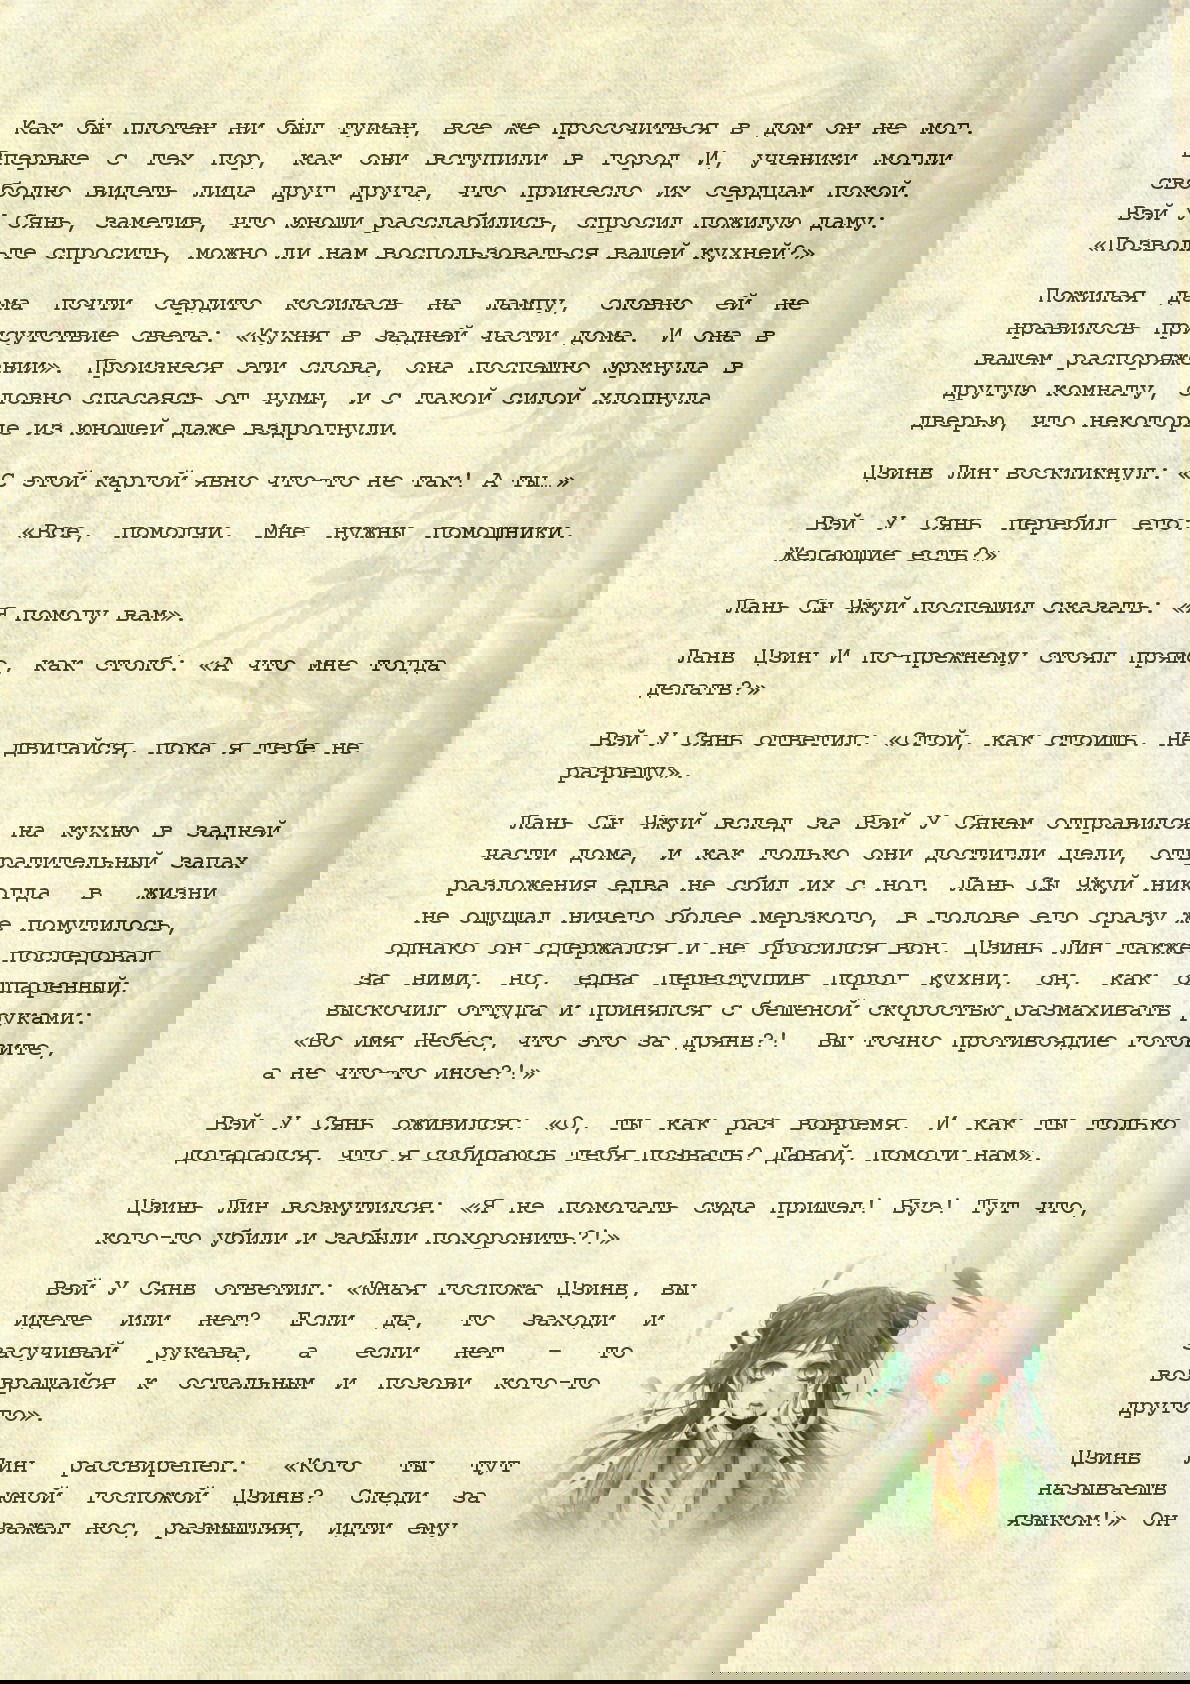 Как бы плотен ни был туман, все же просочиться в дом он не мог.
Впервые с тех пор, как они вступили в город И, ученики могли
свободно видеть лица друг друга, что принесло их сердцам покой.
Вэй У Сянь, заметив, что юноши расслабились, спросил пожилую даму:
«Позвольте спросить, можно ли нам воспользоваться вашей кухней?»
Пожилая дама почти сердито косилась на лампу, словно ей не
нравилось присутствие света: «Кухня в задней части дома. И она в
вашем распоряжении». Произнеся эти слова, она поспешно юркнула в
другую комнату, словно спасаясь от чумы, и с такой силой хлопнула
дверью, что некоторые из юношей даже вздрогнули.
Цзинь Лин воскликнул: «С этой картой явно что-то не так! А ты…»
Вэй У Сянь перебил его: «Все, помолчи. Мне нужны помощники.
Желающие есть?»
Лань Сы Чжуй поспешил сказать: «Я помогу вам».
Лань Цзин И по-прежнему стоял прямо, как столб: «А что мне тогда
делать?»
Вэй У Сянь ответил: «Стой, как стоишь. Не двигайся, пока я тебе не
разрешу».
Лань Сы Чжуй вслед за Вэй У Сянем отправился на кухню в задней
части дома, и как только они достигли цели, отвратительный запах
разложения едва не сбил их с ног. Лань Сы Чжуй никогда в жизни
не ощущал ничего более мерзкого, в голове его сразу же помутилось,
однако он сдержался и не бросился вон. Цзинь Лин также последовал
за ними, но, едва переступив порог кухни, он, как ошпаренный,
выскочил оттуда и принялся с бешеной скоростью размахивать руками:
«Во имя Небес, что это за дрянь?! Вы точно противоядие готовите,
а не что-то иное?!»
Вэй У Сянь оживился: «О, ты как раз вовремя. И как ты только
догадался, что я собираюсь тебя позвать? Давай, помоги нам».
Цзинь Лин возмутился: «Я не помогать сюда пришел! Буэ! Тут что,
кого-то убили и забыли похоронить?!»
Вэй У Сянь ответил: «Юная госпожа Цзинь, вы
идете или нет? Если да, то заходи и
засучивай рукава, а если нет - то
возвращайся к остальным и позови кого-то
другого».
Цзинь Лин рассвирепел: «Кого ты тут
называешь юной госпожой Цзинь? Следи за
языком!» Он зажал нос, размышляя, идти ему